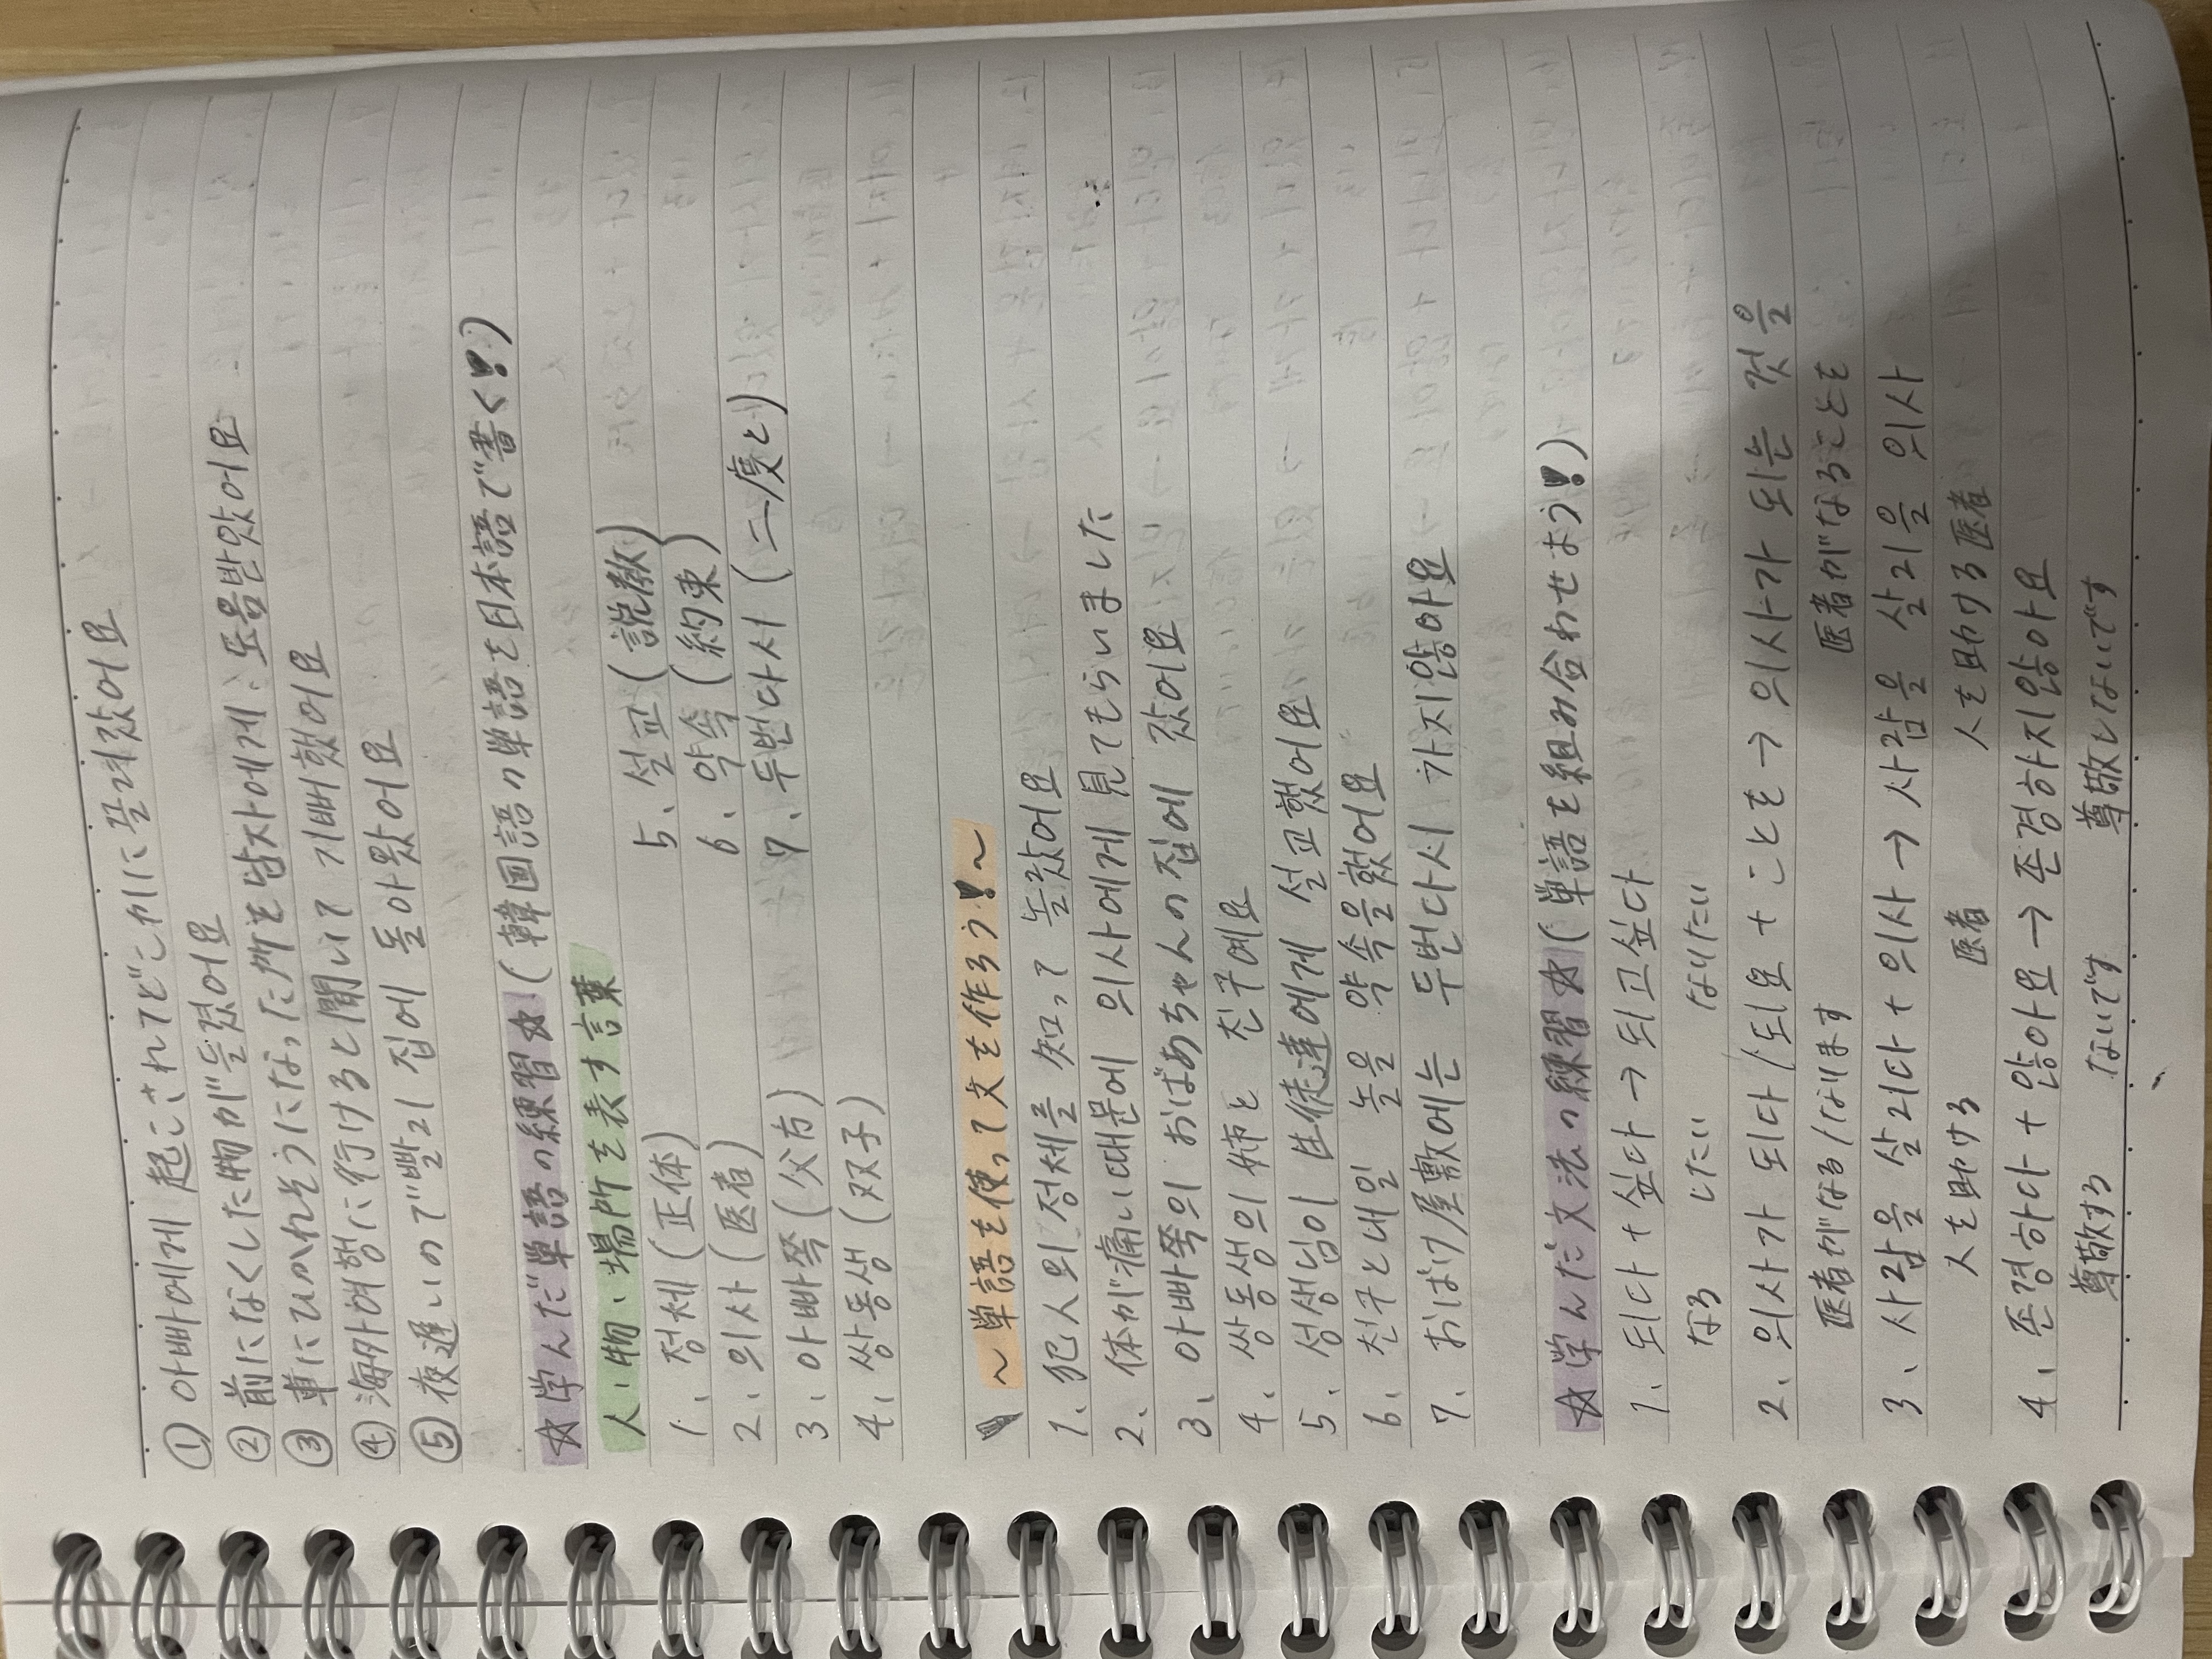 ① 아빠에게 起こされてどこかに끌려갔어요
② 前になくした物が들켰어요
③ 車にひかれそうになった所を남자에게、도움받았어요
④ 海外여행に行けると聞いて 기뻐했어요
⑤ 夜遅いので빨리 집에 돌아왔어요
☆学んだ単語の練習☆(韓国語の単語を日本語で書く!)
人、物、場所を表す言葉
1、정체(正体) 5、설교(説教)
2、의사(医者) 6、약속(約束)
3、아빠쪽(父方) 7、두번다시(二度と)
4、쌍동생(双子)
～単語を使って文を作ろう!～
1、犯人의 정체를 知って 놀랐어요
2、体が痛い때문에 의사에게 見てもらいました
3、아빠쪽의 おばあちゃんの집에 갔어요
4、쌍동생의 姉と 친구예요
5、성생님이 生徒達에게 설교했어요
6、친구と내일 놀을 약속을했어요
7、おばけ屋敷에는 두번다시 가지않아요
☆学んだ文法の練習☆(単語を組み合わせよう!)
1、되다 + 싶다 → 되고싶다
なる したい なりたい
2、의사가 되다/되요 + ことを → 의사가 되는 것을
医者がなる/なります 医者がなることを
3、사람을 살리다 + 의사 → 사람을 살리은 의사
人を助ける 医者 人を助ける医者
4、존경하다 + 않아요 → 존경하지않아요
尊敬する ないです 尊敬しないです